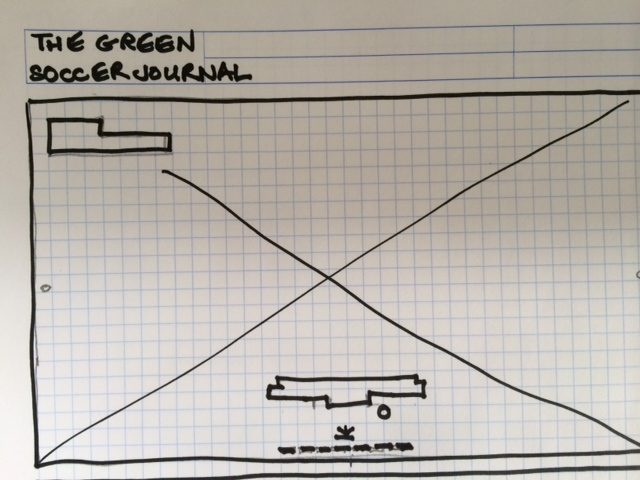 THE GREEN
SOCCER JOURNAL